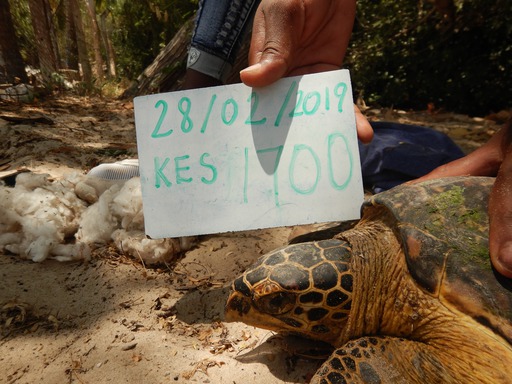 28/02/2019
KES 1700